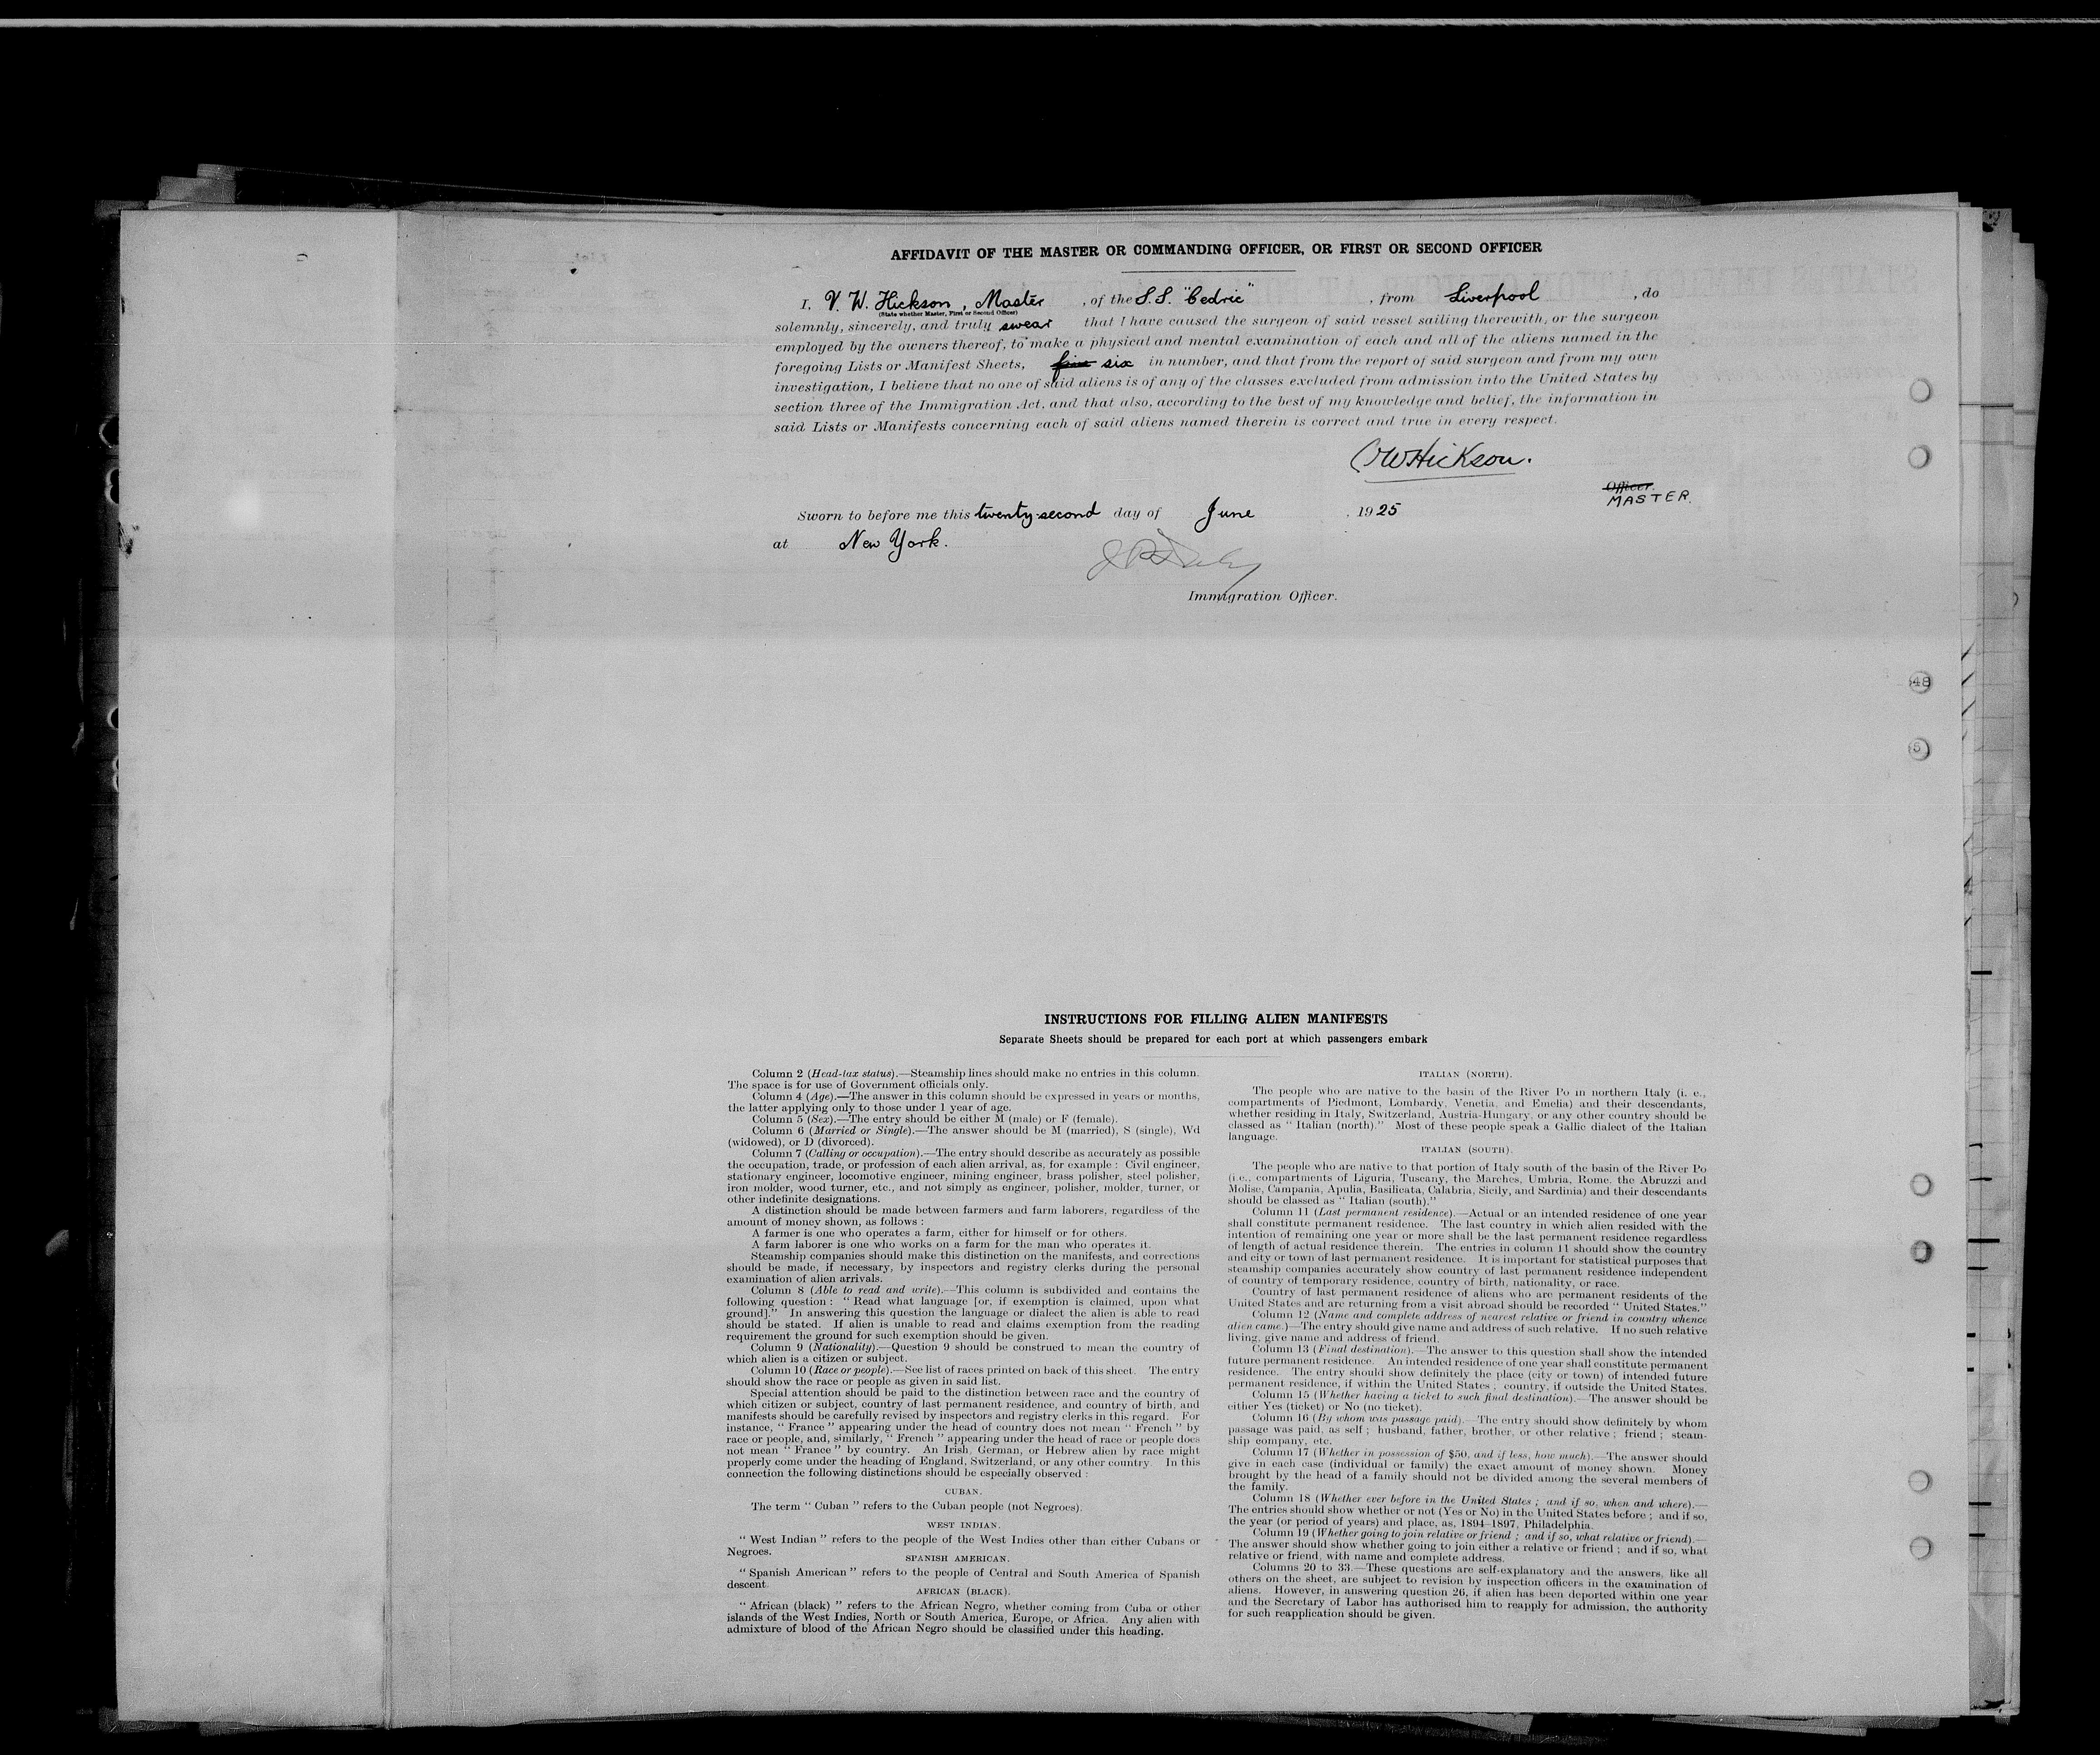 AFFIDAVIT OF THE MASTER OR COMMANDING OFFICER, OR FIRST OR SECOND OFFICER
I, V. W. Hickson, Master, of the S.S. "Cedric", from Liverpool, do
(State whether Master, First or Second Officer)
solemnly, sincerely, and truly swear that I have caused the surgeon of said vessel sailing therewith, or the surgeon
employed by the owners thereof, to make a physical and mental examination of each and all of the aliens named in the
foregoing Lists or Manifest Sheets, five six in number, and that from the report of said surgeon and from my own
investigation, I believe that no one of said aliens is of any of the classes excluded from admission into the United States by
section three of the Immigration Act, and that also, according to the best of my knowledge and belief, the information in
said Lists or Manifests concerning each of said aliens named therein is correct and true in every respect.
VWHickson.
Officer.
MASTER.
Sworn to before me this twenty-second day of June, 1925
at New York.
Immigration Officer.
48
5
INSTRUCTIONS FOR FILLING ALIEN MANIFESTS
Separate Sheets should be prepared for each port at which passengers embark
Column 2 (Head-tax status).—Steamship lines should make no entries in this column.
The space is for use of Government officials only.
Column 4 (Age).—The answer in this column should be expressed in years or months,
the latter applying only to those under 1 year of age.
Column 5 (Sex).—The entry should be either M (male) or F (female).
Column 6 (Married or Single).—The answer should be M (married), S (single), Wd
(widowed), or D (divorced).
Column 7 (Calling or occupation).—The entry should describe as accurately as possible
the occupation, trade, or profession of each alien arrival, as, for example : Civil engineer,
stationary engineer, locomotive engineer, mining engineer, brass polisher, steel polisher,
iron molder, wood turner, etc., and not simply as engineer, polisher, molder, turner, or
other indefinite designations.
A distinction should be made between farmers and farm laborers, regardless of the
amount of money shown, as follows :
A farmer is one who operates a farm, either for himself or for others.
A farm laborer is one who works on a farm for the man who operates it.
Steamship companies should make this distinction on the manifests, and corrections
should be made, if necessary, by inspectors and registry clerks during the personal
examination of alien arrivals.
Column 8 (Able to read and write).—This column is subdivided and contains the
following question : " Read what language [or, if exemption is claimed, upon what
ground]." In answering this question the language or dialect the alien is able to read
should be stated. If alien is unable to read and claims exemption from the reading
requirement the ground for such exemption should be given.
Column 9 (Nationality).—Question 9 should be construed to mean the country of
which alien is a citizen or subject.
Column 10 (Race or people).—See list of races printed on back of this sheet. The entry
should show the race or people as given in said list.
Special attention should be paid to the distinction between race and the country of
which citizen or subject, country of last permanent residence, and country of birth, and
manifests should be carefully revised by inspectors and registry clerks in this regard. For
instance, " France " appearing under the head of country does not mean " French " by
race or people, and, similarly, " French " appearing under the head of race or people does
not mean " France " by country. An Irish, German, or Hebrew alien by race might
properly come under the heading of England, Switzerland, or any other country. In this
connection the following distinctions should be especially observed :
CUBAN.
The term " Cuban " refers to the Cuban people (not Negroes).
WEST INDIAN.
" West Indian " refers to the people of the West Indies other than either Cubans or
Negroes.
SPANISH AMERICAN.
" Spanish American " refers to the people of Central and South America of Spanish
descent.
AFRICAN (BLACK).
" African (black) " refers to the African Negro, whether coming from Cuba or other
islands of the West Indies, North or South America, Europe, or Africa. Any alien with
admixture of blood of the African Negro should be classified under this heading.
ITALIAN (NORTH).
The people who are native to the basin of the River Po in northern Italy (i. e.,
compartments of Piedmont, Lombardy, Venetia, and Emelia) and their descendants,
whether residing in Italy, Switzerland, Austria-Hungary, or any other country should be
classed as " Italian (north)." Most of these people speak a Gallic dialect of the Italian
language.
ITALIAN (SOUTH).
The people who are native to that portion of Italy south of the basin of the River Po
(i.e., compartments of Liguria, Tuscany, the Marches, Umbria, Rome, the Abruzzi and
Molise, Campania, Apulia, Basilicata, Calabria, Sicily, and Sardinia) and their descendants
should be classed as " Italian (south)."
Column 11 (Last permanent residence).—Actual or an intended residence of one year
shall constitute permanent residence. The last country in which alien resided with the
intention of remaining one year or more shall be the last permanent residence regardless
of length of actual residence therein. The entries in column 11 should show the country
and city or town of last permanent residence. It is important for statistical purposes that
steamship companies accurately show country of last permanent residence independent
of country of temporary residence, country of birth, nationality, or race.
Country of last permanent residence of aliens who are permanent residents of the
United States and are returning from a visit abroad should be recorded " United States."
Column 12 (Name and complete address of nearest relative or friend in country whence
alien came.)—The entry should give name and address of such relative. If no such relative
living, give name and address of friend.
Column 13 (Final destination).—The answer to this question shall show the intended
future permanent residence. An intended residence of one year shall constitute permanent
residence. The entry should show definitely the place (city or town) of intended future
permanent residence, if within the United States ; country, if outside the United States.
Column 15 (Whether having a ticket to such final destination).—The answer should be
either Yes (ticket) or No (no ticket).
Column 16 (By whom was passage paid).—The entry should show definitely by whom
passage was paid, as self ; husband, father, brother, or other relative ; friend ; steam-
ship company, etc.
Column 17 (Whether in possession of $50, and if less, how much).—The answer should
give in each case (individual or family) the exact amount of money shown. Money
brought by the head of a family should not be divided among the several members of
the family.
Column 18 (Whether ever before in the United States ; and if so, when and where).—
The entries should show whether or not (Yes or No) in the United States before ; and if so,
the year (or period of years) and place, as, 1894–1897, Philadelphia.
Column 19 (Whether going to join relative or friend ; and if so, what relative or friend).—
The answer should show whether going to join either a relative or friend ; and if so, what
relative or friend, with name and complete address.
Columns 20 to 33.—These questions are self-explanatory and the answers, like all
others on the sheet, are subject to revision by inspection officers in the examination of
aliens. However, in answering question 26, if alien has been deported within one year
and the Secretary of Labor has authorised him to reapply for admission, the authority
for such reapplication should be given.